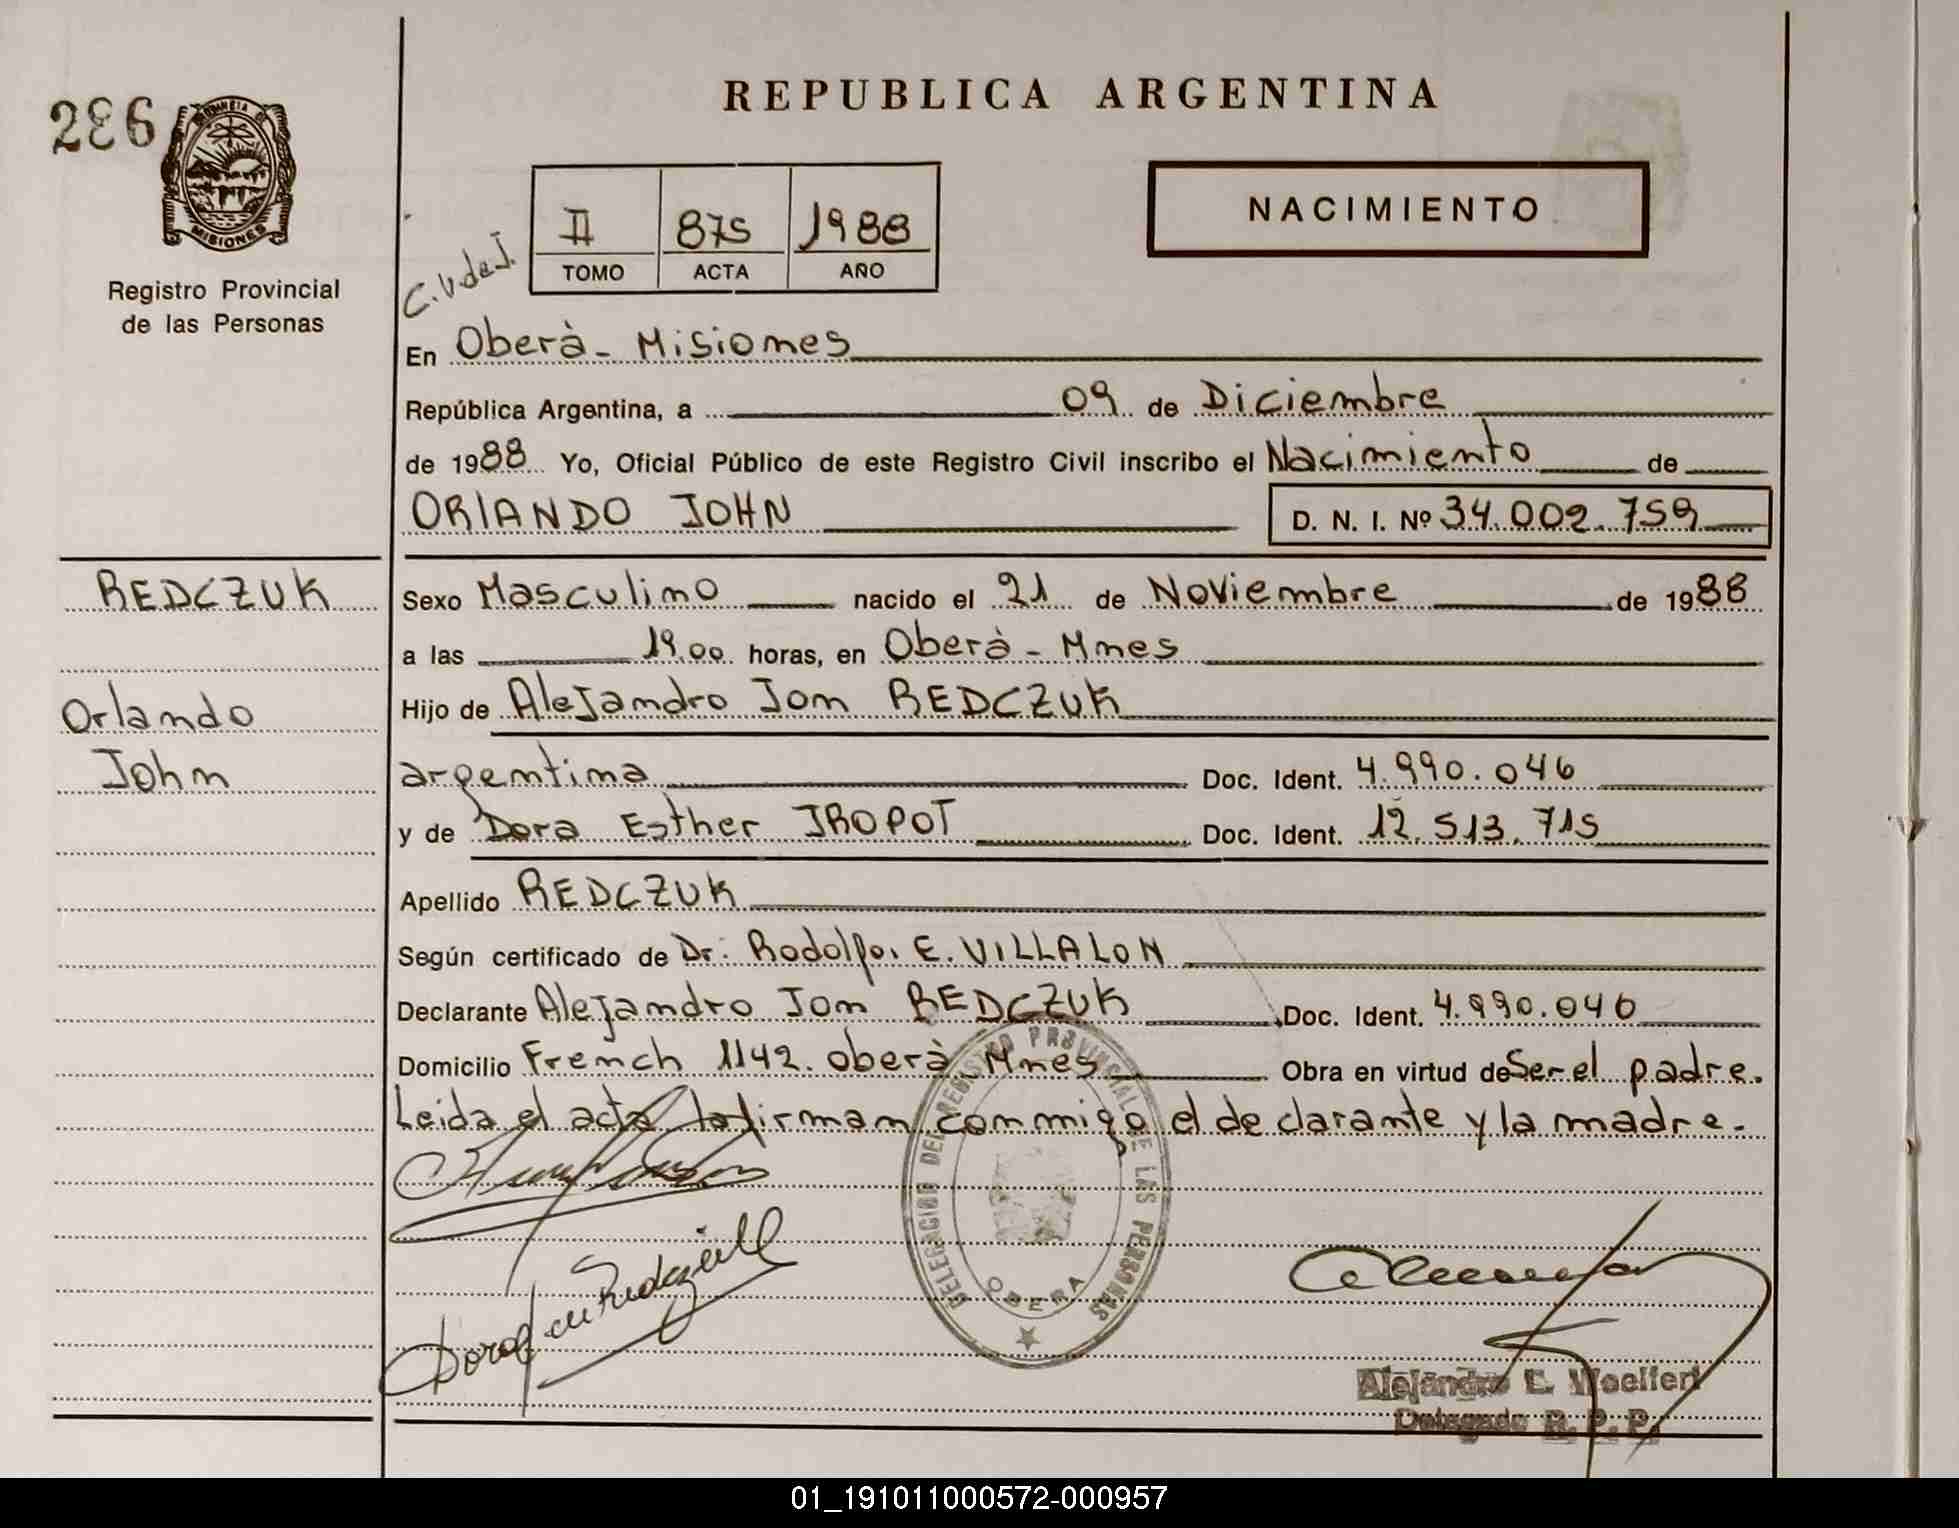 286
PROVINCIA DE
MISIONES
Registro Provincial
de las Personas
REPUBLICA ARGENTINA
NACIMIENTO
II 875 1988
TOMO ACTA AÑO
C.V.deJ.
En Oberà - Misiones
República Argentina, a 09 de Diciembre
de 1988 Yo, Oficial Público de este Registro Civil inscribo el Nacimiento de
ORLANDO JOHN D. N. I. Nº 34.002.759
REDCZUK
Orlando
John
Sexo Masculino nacido el 21 de Noviembre de 1988
a las 19.00 horas, en Oberà - Mnes
Hijo de Alejandro Jon REDCZUK
argentina Doc. Ident. 4.990.046
y de Dora Esther JROPOT Doc. Ident. 12.513.715
Apellido REDCZUK
Según certificado de Dr. Rodolfo. E. VILLALON
Declarante Alejandro Jon REDCZUK Doc. Ident. 4.990.046
Domicilio French 1142. Oberà Mnes Obra en virtud de Ser el padre.
Leida el acta la firman conmigo el declarante y la madre.
DELEGACION DEL REGISTRO PROVINCIAL DE LAS PERSONAS
OBERA
Alejandro E. Woelfert
Delegado R. P. P.
01_191011000572-000957